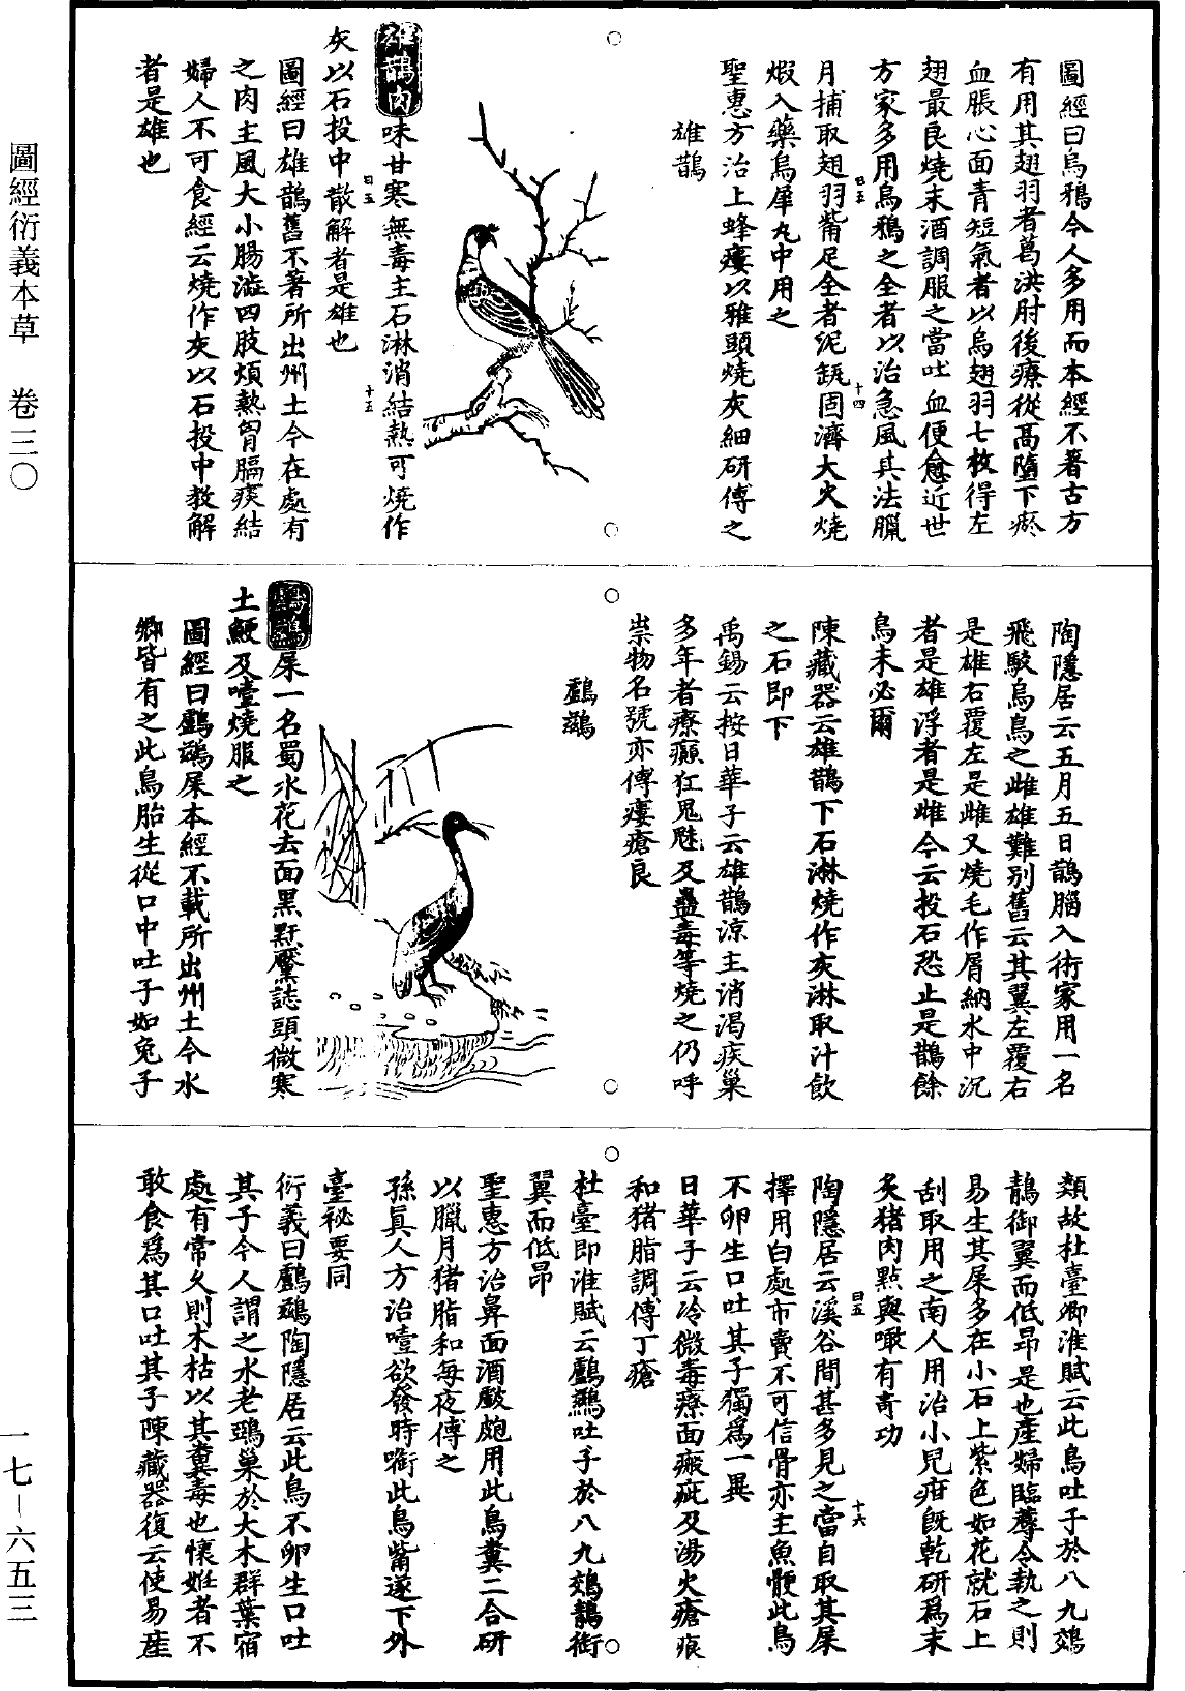 圖經曰烏鴉今人多用而本經不著古方
有用其翅羽者葛洪肘後療從高墮下瘀
血脹心面青短氣者以烏翅羽七枚得左
翅最良燒末酒調服之當吐血便愈近世
方家多用烏鴉之全者以治急風其法臘
月捕取翅羽觜足全者泥缻固濟大火燒
煆入藥烏犀丸中用之
聖惠方治上蜂瘻以雅頭燒灰細研傅之
雄鵲
雄鵲肉味甘寒無毒主石淋消結熱可燒作
灰以石投中散解者是雄也
圖經曰雄鵲舊不著所出州土今在處有
之肉主風大小腸澁四肢煩熱胷膈痰結
婦人不可食經云燒作灰以石投中教解
者是雄也
陶隱居云五月五日鵲腦入術家用一名
飛駮烏烏之雌雄難別舊云其翼左覆右
是雄右覆左是雌又燒毛作屑納水中沉
者是雄浮者是雌今云投石恐止是鵲餘
鳥未必爾
陳藏器云雄鵲下石淋燒作灰淋取汁飲
之石即下
禹錫云按日華子云雄鵲涼主消渴疾巢
多年者療癲狂鬼魅及蠱毒等燒之仍呼
祟物名號亦傅瘻瘡良
鸕鷀
鸕鷀屎一名蜀水花去面黑䵟黶誌頭微寒
土鯁及噎燒服之
圖經曰鸕鷀屎本經不載所出州土今水
鄉皆有之此鳥胎生從口中吐子如兔子
類故杜臺卿淮賦云此鳥吐子於八九鵁
鶄御翼而低昂是也產婦臨蓐令執之則
易生其屎多在小石上紫色如花就石上
刮取用之南人用治小兒疳旣乾研爲末
炙猪肉點與噉有奇功
陶隱居云溪谷間甚多見之當自取其屎
擇用白處市賣不可信骨亦主魚骾此鳥
不卵生口吐其子獨爲一異
日華子云冷微毒療面瘢疵及湯火瘡痕
和猪脂調傅丁瘡
杜臺即淮賦云鸕鷀吐子於八九鵁鶄銜
翼而低昂
聖惠方治鼻面酒皻皰用此鳥糞二合研
以臘月猪脂和每夜傅之
孫眞人方治噎欲發時啣此鳥觜遂下外
臺秘要同
衍義曰鸕鷀陶隱居云此鳥不卵生口吐
其子今人謂之水老鵶巢於大木群葉宿
處有常久則木枯以其糞毒也懷姙者不
敢食爲其口吐其子陳藏器復云使易産
圖經衍義本草 卷三〇
一七-六五三